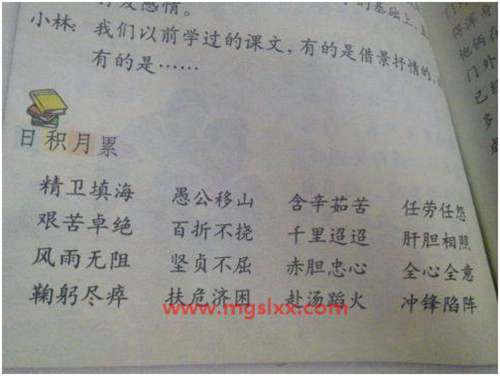 发感情。
的基础上,
小林:我们以前学过的课文,有的是借景抒情的,
有的是……
日积月累
精卫填海 愚公移山 含辛茹苦 任劳任怨
艰苦卓绝 百折不挠 千里迢迢 肝胆相照
风雨无阻 坚贞不屈 赤胆忠心 全心全意
鞠躬尽瘁 扶危济困 赴汤蹈火 冲锋陷阵
www.mgslxx.com
他俩
门外
已
多